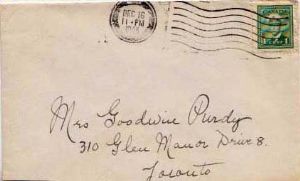 DEC 16
11 PM
CANADA
1 1
Mrs Goodwin Purdy
310 Glen Manor Drive 8.
Toronto